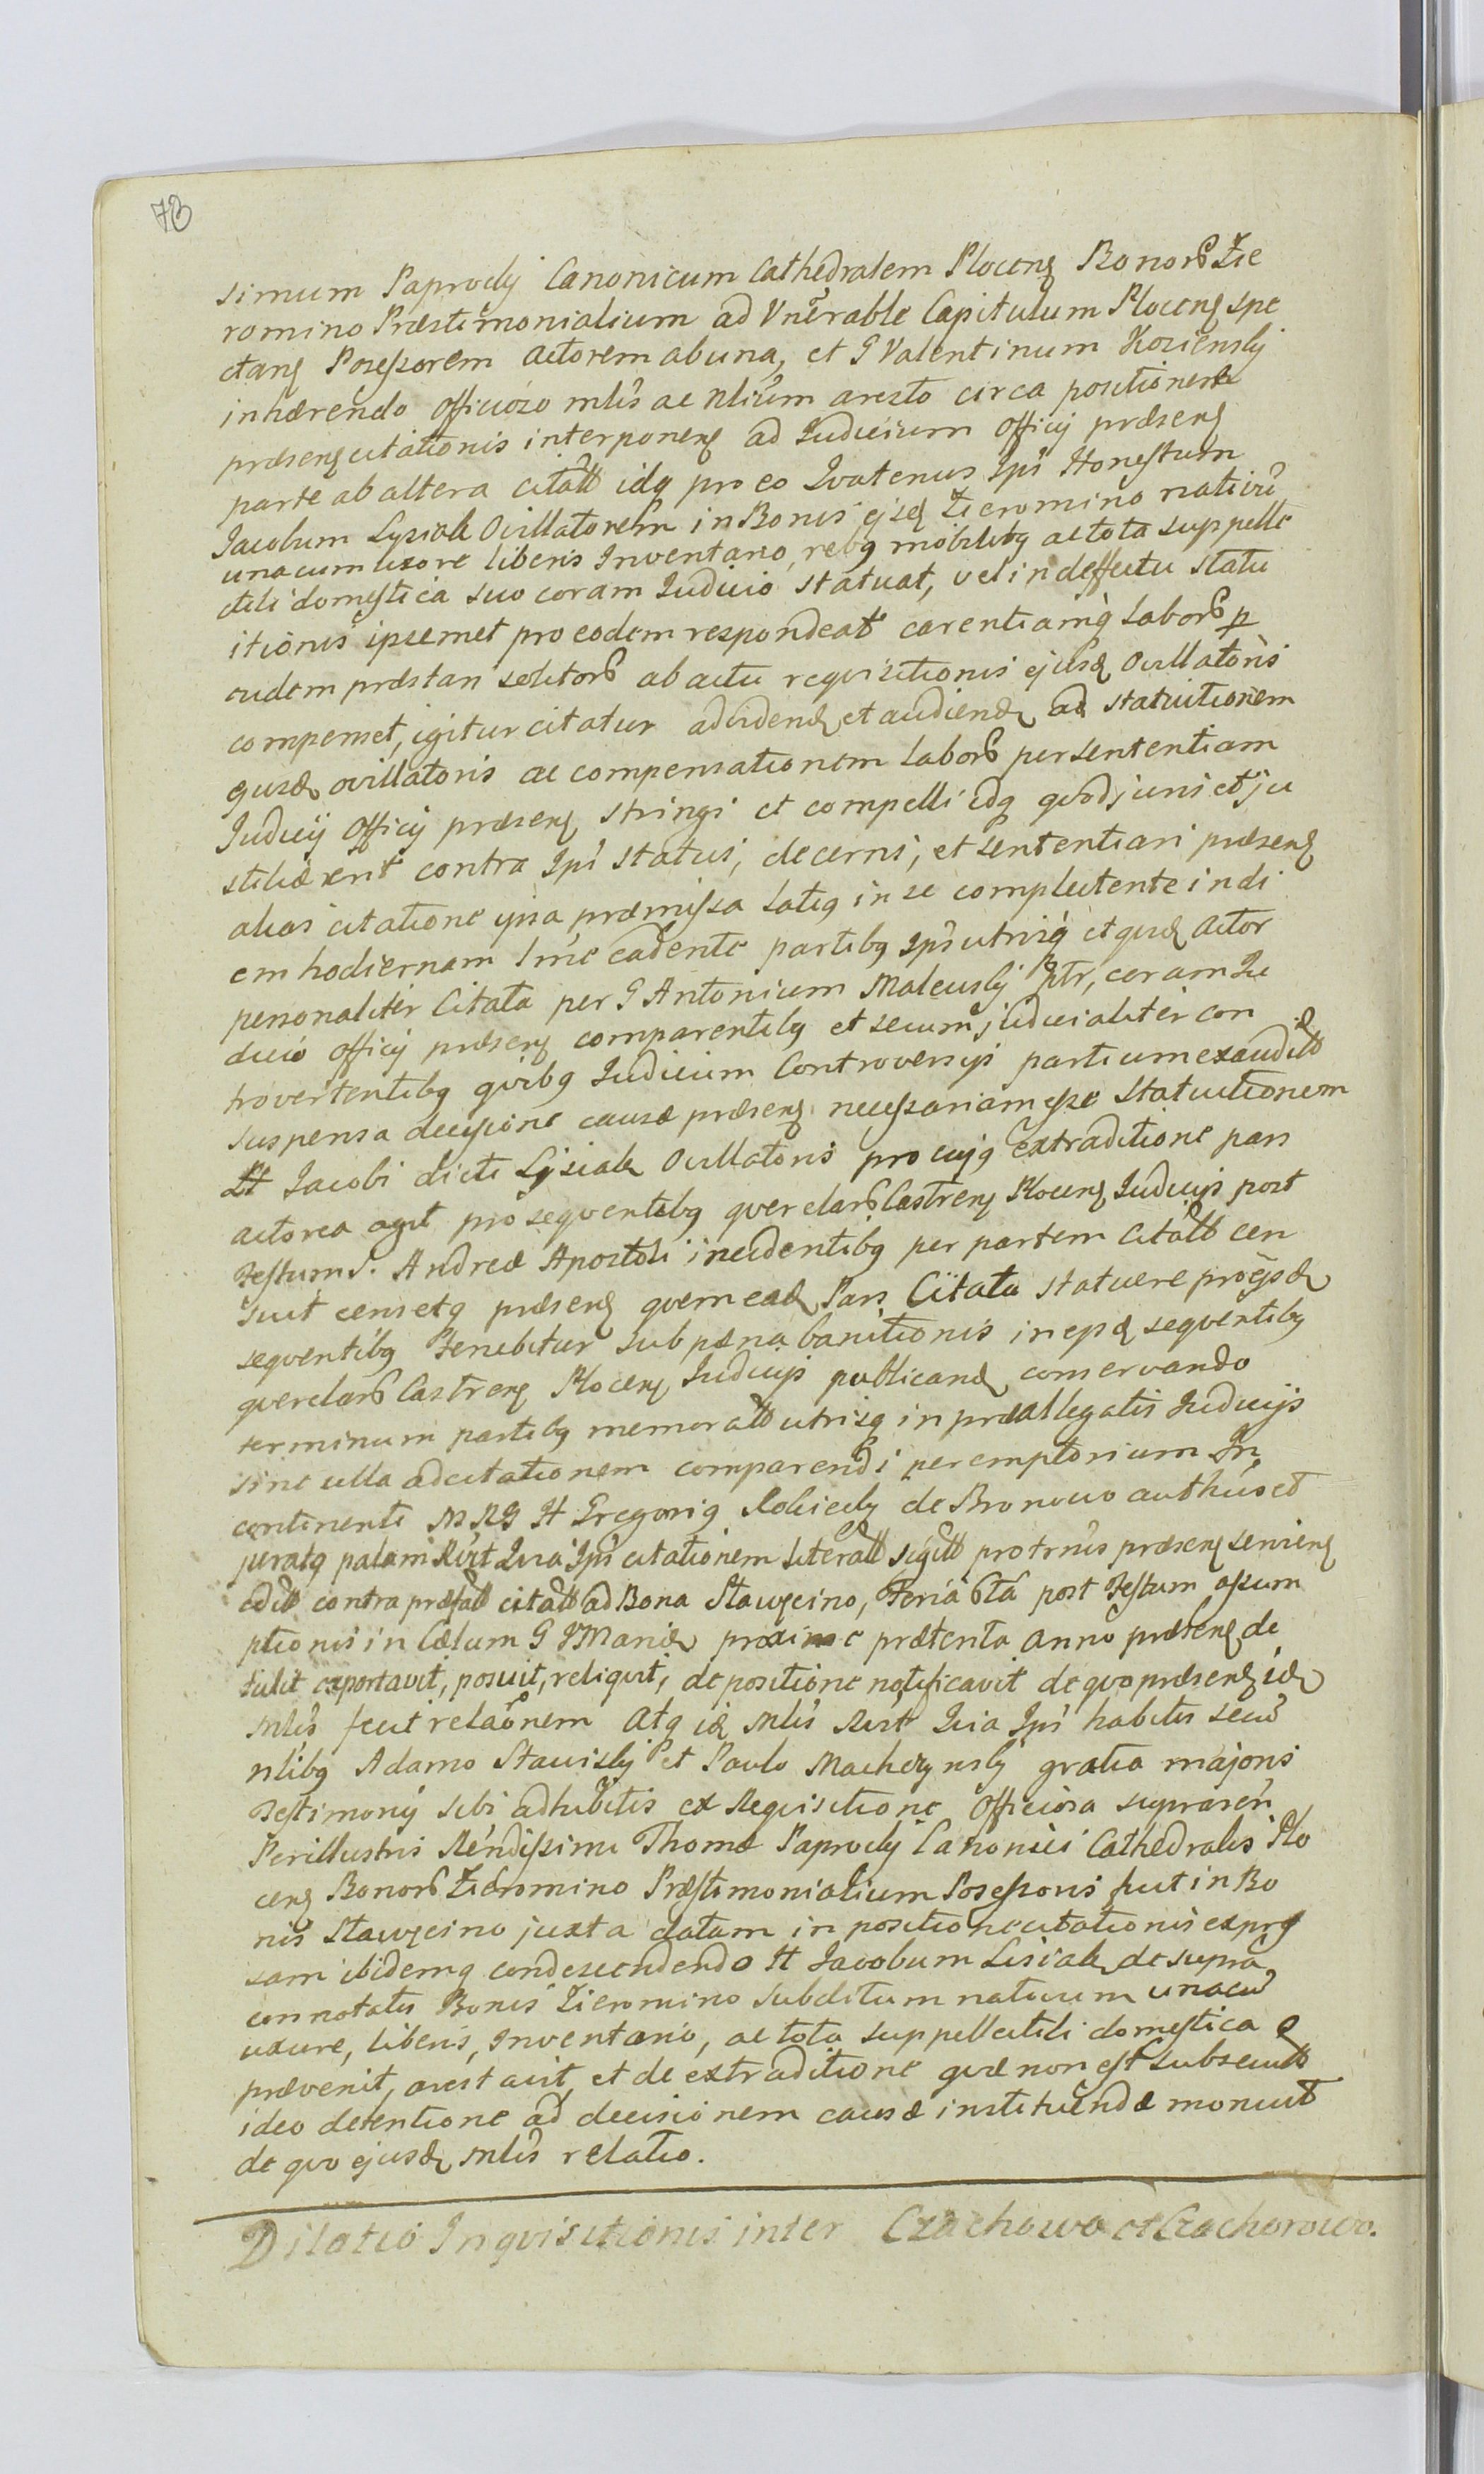 73
simum Paprocky Canonicum Cathedralem Plocenȝ Bonorȝ Zie
romino Præstimonialium ad Vnerable Capitulum Plocenȝ spe
ctanȝ Poseſsorem actorem ab una, et G Valentinum Kosiensky
inhærendo officioso mlis ac Nlium aresto circa positionem
præsenȝ citationis interponenȝ ad Judicium Officij præsenȝ
parte ab altera citatt idq pro eo Qvatenus Ips Honeſtum
Jacobum Lysiak Ovillatorem in Bonis ejsdȝ Zieromino nativū
una cum uxore liberis Inventario, rebq mobilibq ac tota suppelle
ctili domeſtica suo coram Judicio statuat, vel in deffectu statu
itionis ipsemet pro eodem respondeat carentiamq̀ laborȝ p
eudem præstari solitorȝ ab actu reqvisitionis ejusdȝ Ovillatoris
compenset, igitur citatur ad videndȝ et audiendȝ ad statuitionem
ejusdȝ ovillatoris ac compensationem laborȝ per sententiam
Judicij Officij præsenȝ stringi et compelli idq qvod juris et ju
stitiæ erit contra Ips statui, decerni, et sententiari præsenȝ
alias citatione ipsa præmiſsa latiq in se complectente in di
em hodiernam lme cadente partibq Ips utrisq̀ et qvidȝ Actor
personaliter Citata per G Antonium Maleusky Ptr, coram Ju
dicio Officij præsenȝ comparentibq et secum judicialiter con
trovertentibq qvibq Judicium Controversijs partium exauditt
suspensa decisione causæ præsenȝ neceſsariam eſse Statuitionem
Ht Jacobi dicti Lysiak Ovillatoris pro cujq extraditione pars
actorea agit pro seqventibq qverelarȝ Castrenȝ Plocenȝ Judicijs post
Feſtum S. Andreæ Apostoli incidentibq per partem Citatt cen
suit censetq præsenȝ qvem eadȝ Pars Citata statuere pro ejsdȝ
seqventibq Tenebitur sub pæna banitionis in epsdȝ seqventibq
qverelarȝ Castrenȝ Plocenȝ Judicijs publicandȝ conservando
terminum partibq memoratt utrisq in præallegatis Judicijs
sine ulla adcitationem comparendi peremptorium In
continenti MRG Ht Gregoriq Rokicky de Bronowo authus et
juratq palam Rvit Qvia Ips citationem literatt sigitt pro trnis præsenȝ servienȝ
editt contra præfatt citatt ad Bona Stawęcino, Feria 6ta post Feſtum aſsum
ptionis in Cælum G V Mariæ proxime præterita anno præsenȝ de
tulit exportavit, posuit, reliqvit, de positione notificavit de qvo præsenȝ idȝ
Mlis fecit relaonem Atq idȝ Mlis Rvit Qvia Ips habitis secū
Nlibq Adamo Stawisky et Paulo Machczynsky gratia majoris
Teſtimonij sibi adhibitis ex Reqvisitione Officiosa supraren
Perillustris Rendiſsimi Thomæ Paprocky Canonici Cathedralis Plo
cenȝ Bonorȝ Zieromino Præſtimonialium Poseſsoris fuit in Bo
nis Stawęcino juxta datam in positione citationis expreſ
sam ibidemq condescendendo Ht Jacobum Lisiak de supra
connotatis Bonis Zieromino subditum nativum una cū
uxore, liberis, Inventario, ac tota suppellectili domeſtica
prævenit, arestavit, et de extraditione qvæ non eſt subsecutt
ideo detentione ad decisionem causæ instituendæ monuit
de qvo ejusdȝ Mlis relatio.
Dilatio Inqvisitionis inter Czachowo et Czachorowo.